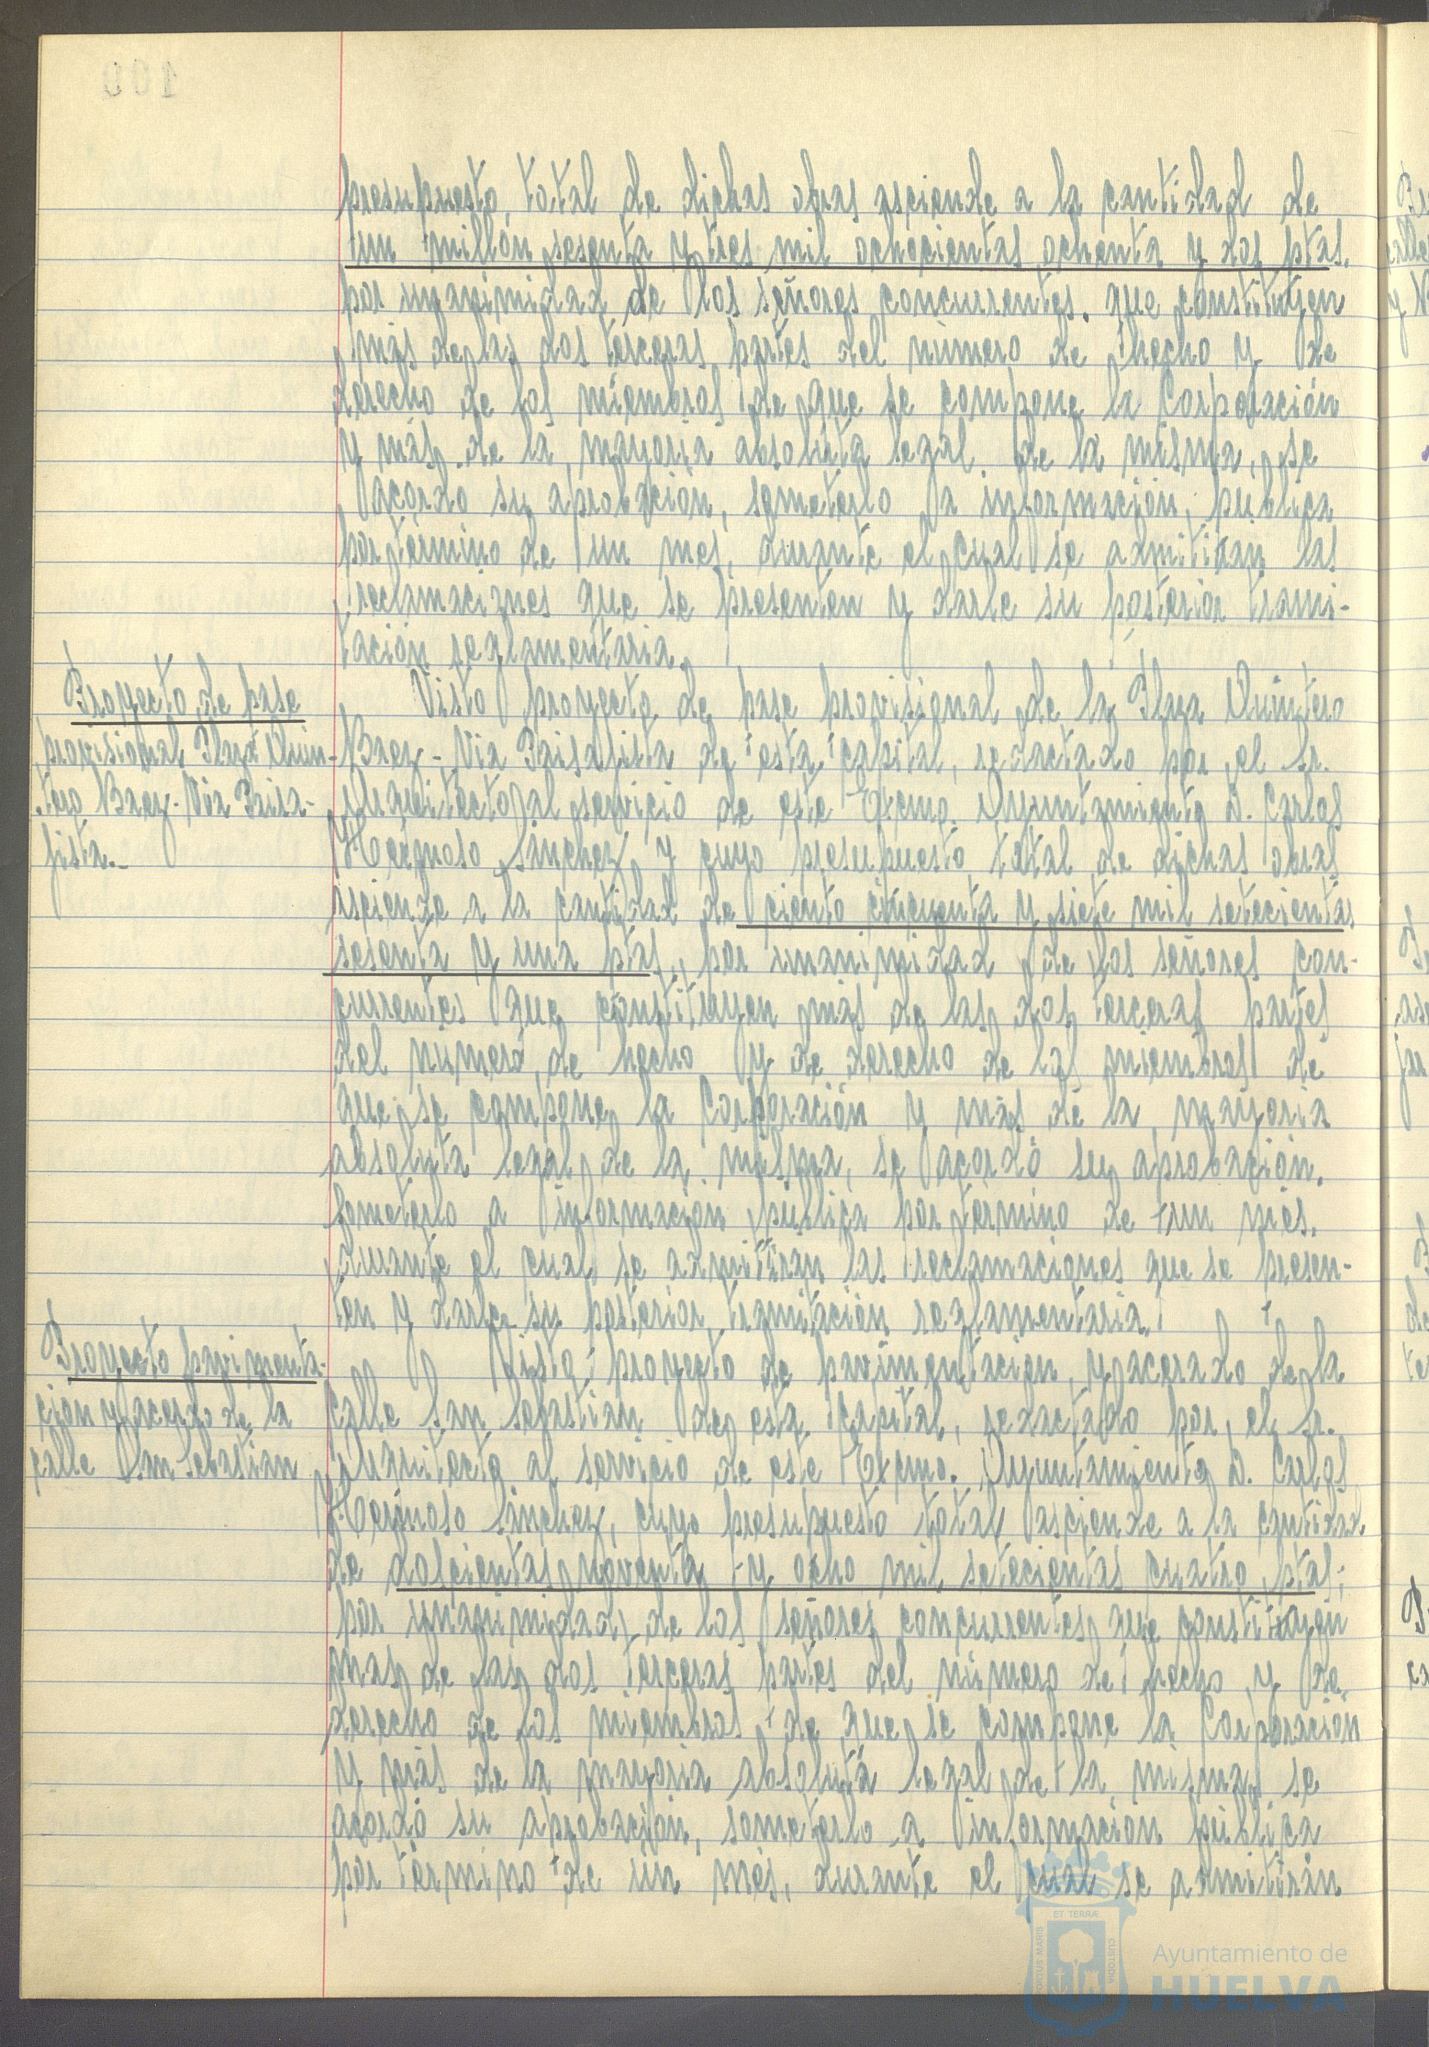 presupuesto total de dichas obras asciende a la cantidad de
un millón sesenta y tres mil ochocientas ochenta y dos ptas.
por unanimidad de los señores concurrentes, que constituyen
más de las dos terceras partes del número de hecho y de
derecho de los miembros de que se compone la Corporación
y más de la mayoria absoluta legal de la misma, se
acordo su aprobación, someterlo a información pública
por término de un mes, durante el cual se admitiran las
reclamaciones que se presenten y darle su posterior trami-
tación reglamentaria.
Proyecto de pase
provisional Plaza Quin-
tero Baez - Via Paisa-
jista.-
Visto proyecto de pase provisional de la Plaza Quintero
Baez - Via Paisajista de esta capital, redactado por el Sr.
Arquitecto al servicio de este Excmo. Ayuntamiento D. Carlos
Hermoso Sánchez y cuyo presupuesto total de dichas obras
asciende a la cantidad de ciento cincuenta y siete mil setecientas
sesenta y una ptas., por unanimidad de los señores con-
currentes que constituyen más de las dos terceras partes
del número de hecho y de derecho de los miembros de
que se compone la Corporación y más de la mayoria
absoluta legal de la misma, se acordó su aprobación.
Someterlo a información pública por término de un mes,
durante el cual se admitirán las reclamaciones que se presen-
ten y darle su posterior tramitación reglamentaria.
Proyecto pavimenta-
ción y acerado de la
calle San Sebastian
Visto proyecto de pavimentación y acerado de la
calle San Sebastian de esta capital, redactado por el Sr.
Arquitecto al servicio de este Excmo. Ayuntamiento D. Carlos
Hermoso Sánchez, cuyo presupuesto total asciende a la cantidad
de doscientas noventa y ocho mil setecientas cuatro ptas;
por unanimidad de los señores concurrentes que constituyen
mas de las dos terceras partes del número de hecho y de
derecho de los miembros de que se compone la Corporación
y más de la mayoria absoluta legal de la misma, se
acordó su aprobación, someterlo a información pública
por término de un mes, durante el cual se admitirán
ET TERRAE
CUSTODIA
Ayuntamiento de
HUELVA